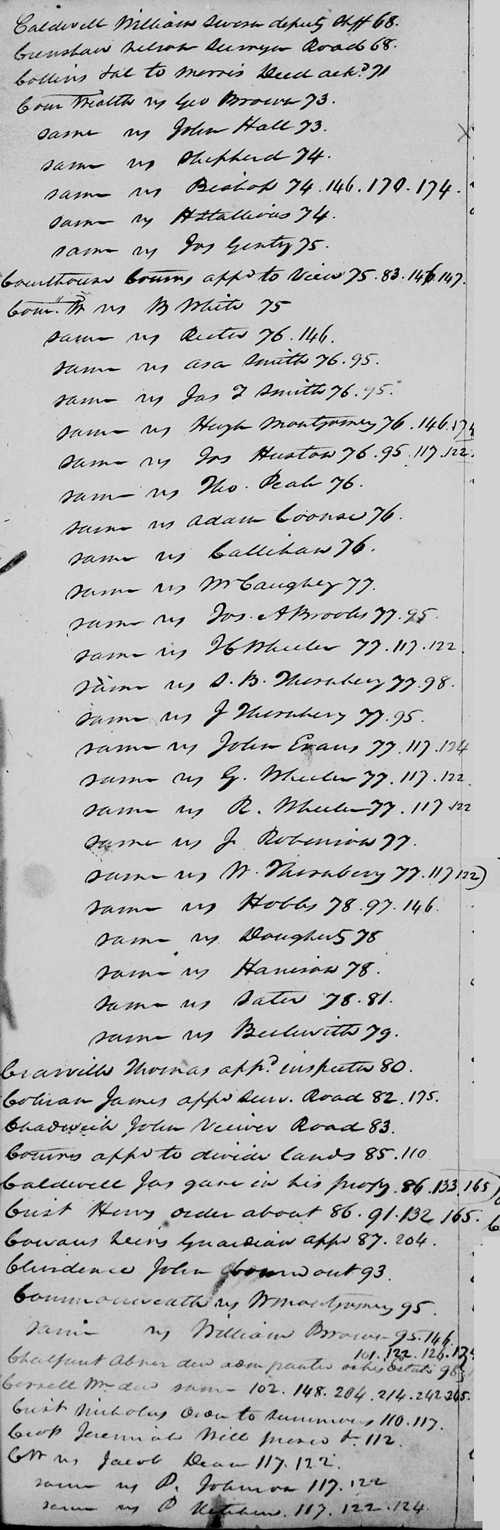 Caldwell William Sworn deputy Shff 68.
Crenshaw Nelson Surveyor Road 68.
Collins Jal to Morris Deed ackd. 71
Com Wealth vs Geo Brown 73.
same vs John Hall 73.
same vs Shepherd 74.
same vs Bishop 74. 146. 170. 174.
same vs H Stallions 74.
same vs Jos Genty 75.
Courthouse Comrs appd to View 75. 83. 146. 147.
Com. W vs B White 75
same vs Reeter 76. 146.
same vs Asa Smith 76. 95.
same vs Jas T Smith 76. 95.
same vs Hugh Montgomery 76. 146. 174
same vs Jos Huston 76. 95. 117. 122.
same vs Tho. Peak 76.
same vs Adam Coonse 76.
same vs Callihan 76.
same vs McCaughey 77.
same vs Jos. A Brooks 77. 95.
same vs H Wheeler 77. 117. 122.
same vs S. B. Thornbery 77. 98.
same vs J Thornbery 77. 95.
same vs John Evans 77. 117. 124
same vs G. Wheeler 77. 117. 122
same vs R. Wheeler 77. 117. 122
same vs J. Robinson 77.
same vs W. Thornbery 77. 117 122)
same vs Hobbs 78. 97. 146.
same vs Dougherty 78
same vs Harrison 78.
same vs Sater 78. 81.
same vs Beckwith 79.
Thomas appd. inspector 80.
James appd Surv. Road 82. 175.
Chadwick John Viewer Road 83.
Comrs appd to divide lands 85. 110
Caldwell Jas gave in his 86. 133. 165
Crist Henry order about 86. 91. 132 165.
Cowans heirs Guardian appd 87. 204.
Clendence John bound out 93.
Commonwealth vs W Montgomery 95.
same vs William Brown 95. 146
101. 122. 126. 134
Chalfant Abner decd adm granted on his Estate 96
Wm decd same 102. 148. 204. 214. 242. 265.
Crist Nicholas Order to summons 110. 117.
Jeremiah Will 112.
CW vs Jacob Dean 117. 122.
same vs P. Johnson 117. 122
same vs P 117. 122. 124.